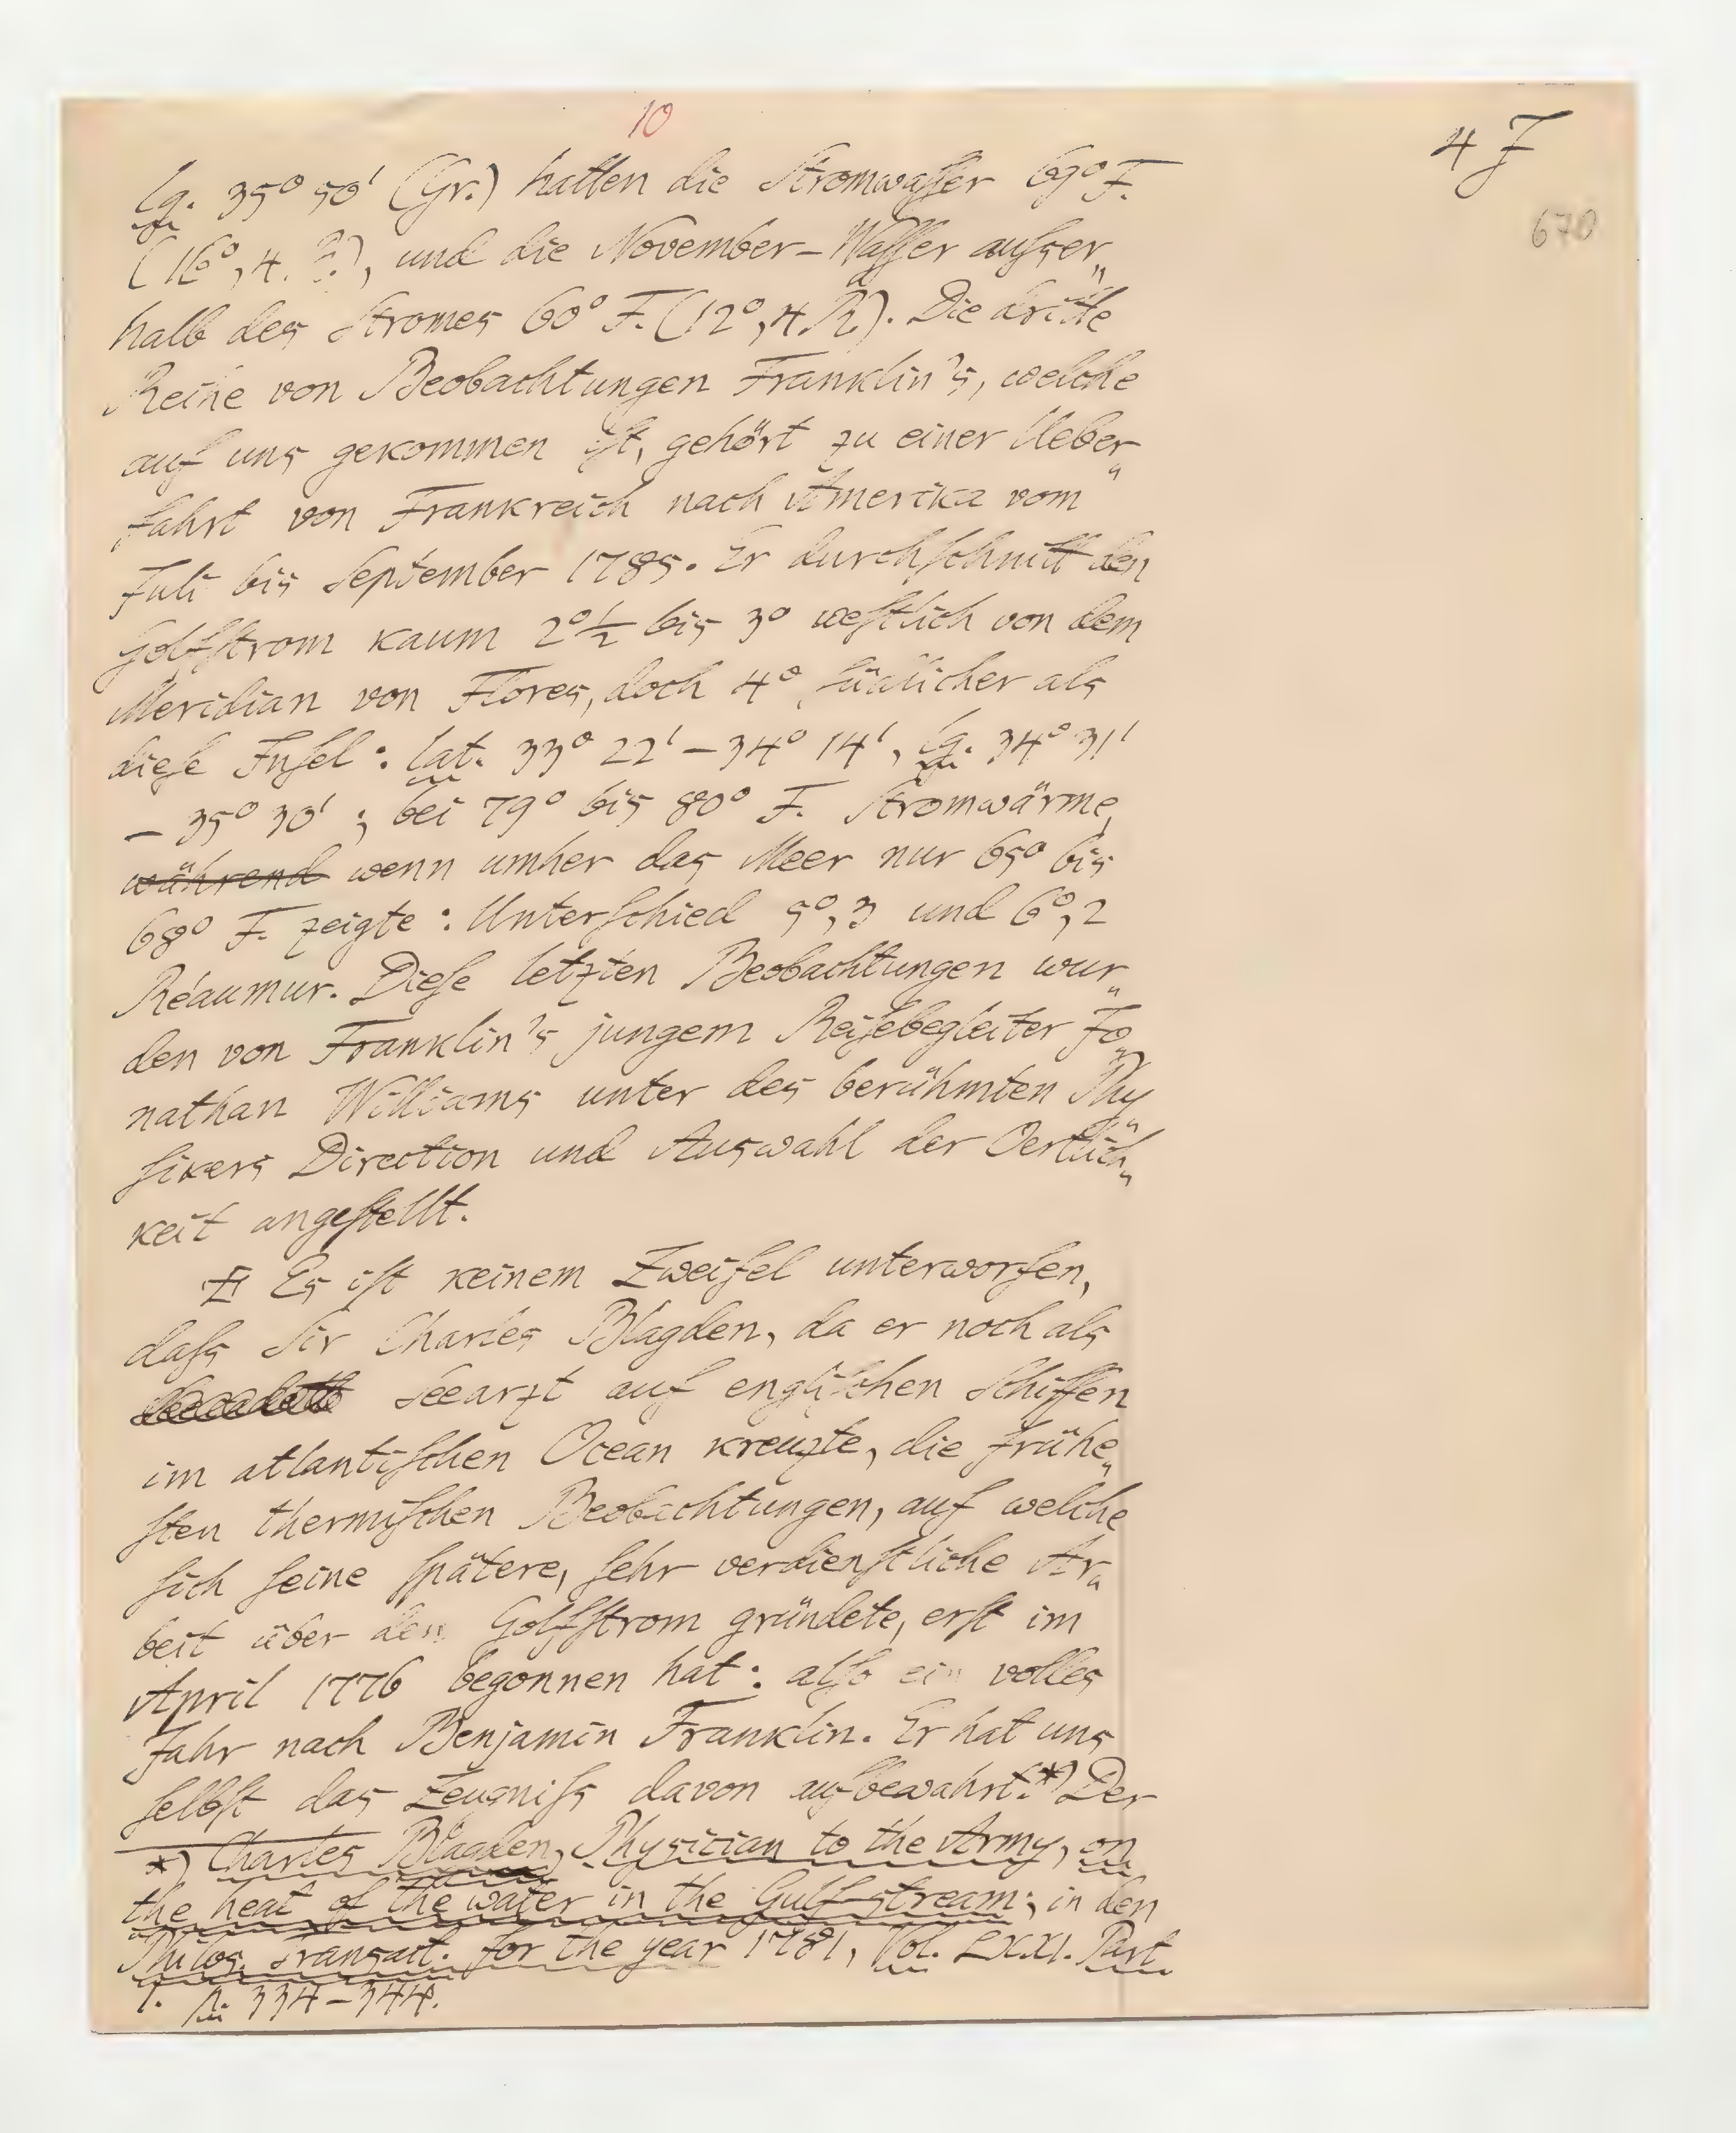 10
4 J
670
lg. 35° 50' (Gr.) hatten die Stromwasser 69° F.
(16°,4. R.), und die November-Wasser ausser„
halb des Stromes 60° F. (12°,4 R.). Die dritte
Reihe von Beobachtungen Franklin's, welche
auf uns gekommen ist, gehört zu einer Ueber„
fahrt von Frankreich nach Amerika vom
Juli bis September 1785. Er durchschnitt den
Golfstrom kaum 2°½ bis 3° westlich von dem
Meridian von Flores, doch 4° südlicher als
diese Insel: lat. 33° 22' – 34° 14', lg. 34° 31'
– 35° 30'; bei 79° bis 80° F. Stromwärme,
während wenn umher das Meer nur 65° bis
68° F. zeigte: Unterschied 5°,3 und 6°,2
Réaumur. Diese letzten Beobachtungen wur„
den von Franklin's jungem Reisebegleiter Jo„
nathan Williams unter des berühmten Phy„
sikers Direction und Auswahl der Oertlich„
keit angestellt.
Es ist keinem Zweifel unterworfen,
dass Sir Charles Blagden, da er noch als
Seearzt auf englischen Schiffen
im atlantischen Ocean kreuzte, die frühe„
sten thermischen Beobachtungen, auf welche
sich seine spätere, sehr verdienstliche Ar„
beit über den Golfstrom gründete, erst im
April 1776 begonnen hat: also ein volles
Jahr nach Benjamin Franklin. Er hat uns
selbst das Zeugniss davon aufbewahrt.*) Der
*) Charles Blagden, Physician to the Army, on
the heat of the water in the Gulf-stream; in den
Philos. Transact. for the year 1781, Vol. LXXI. Part
I. p. 334–344.